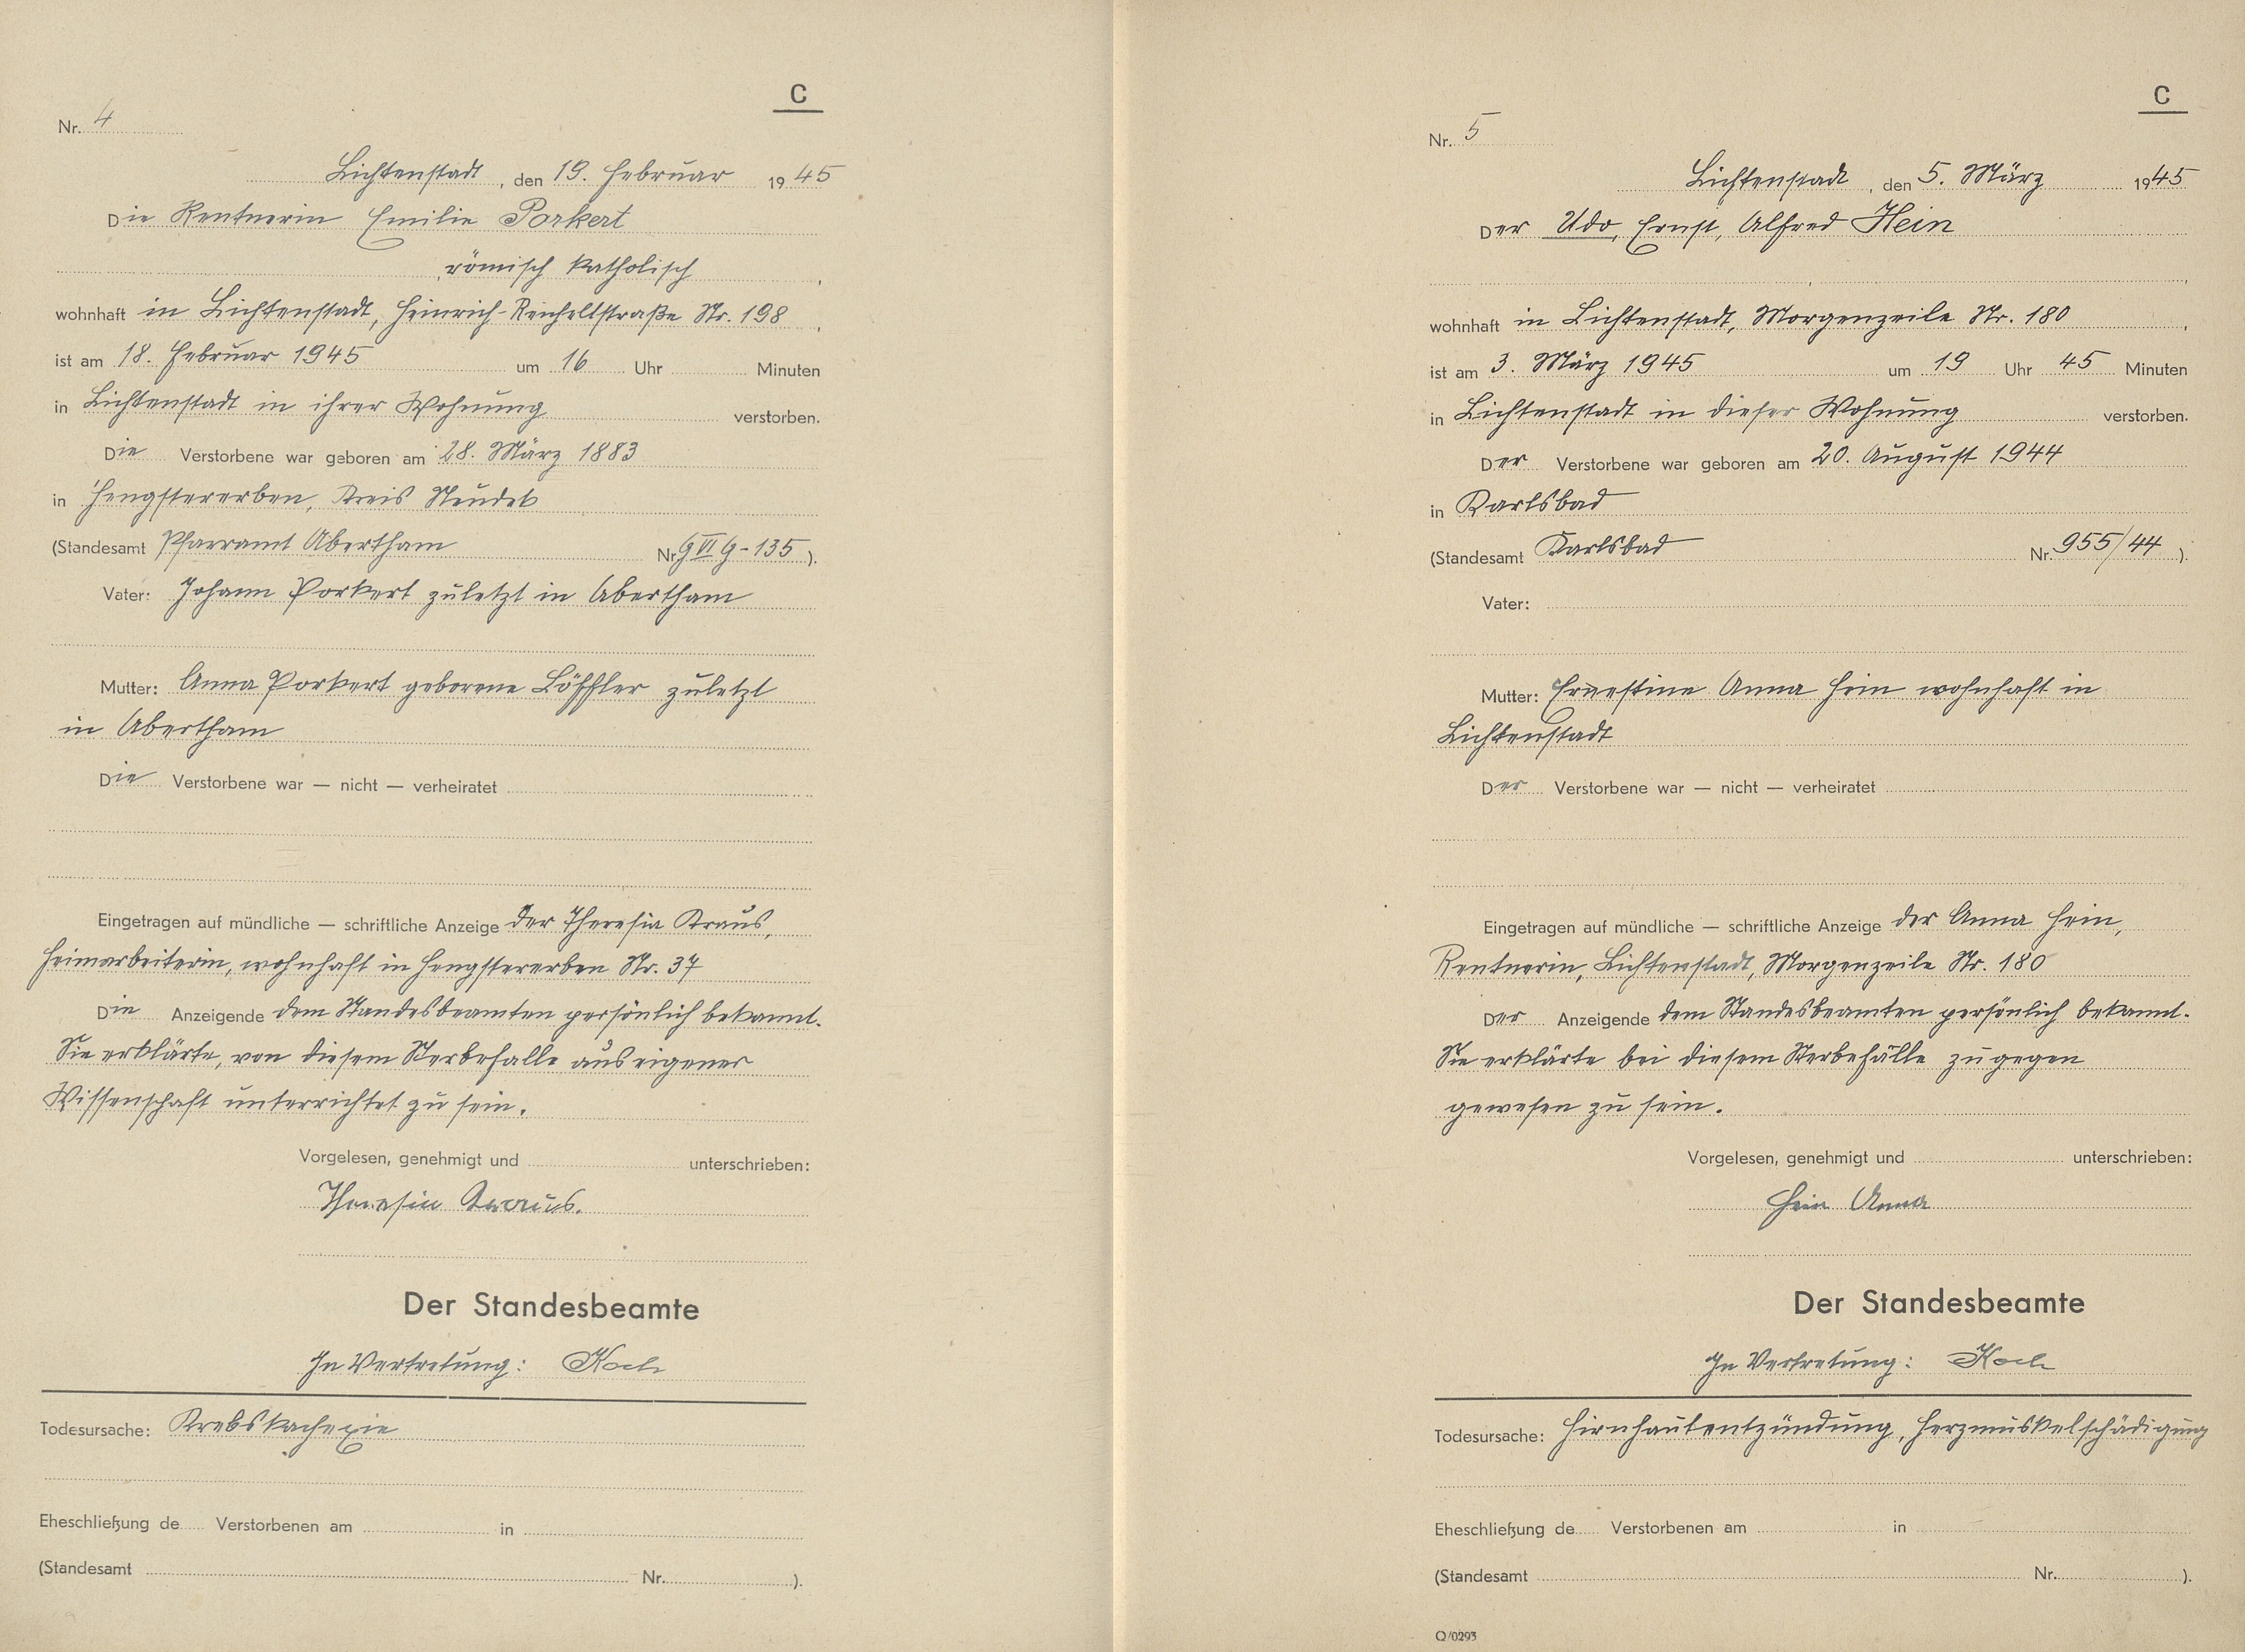 C
Nr. 4
Lichtenstadt, den 19. Februar 1945
Die Rentnerin Emilie Porkert
römisch katholisch,
wohnhaft in Lichtenstadt, Heinrich-Reicheltstraße Nr. 198,
ist am 18. Februar 1945 um 16 Uhr Minuten
in Lichtenstadt in ihrer Wohnung verstorben.
Die Verstorbene war geboren am 28. März 1883
in Hengstererben, Kreis Neudek
(Standesamt Pfarramt Abertham Nr. 9 VI 9-135).
Vater: Johann Porkert zuletzt in Abertham
Mutter: Anna Porkert geborene Löffler zuletzt
in Abertham
Die Verstorbene war — nicht — verheiratet
Eingetragen auf mündliche — schriftliche Anzeige der Theresia Kraus,
Heimarbeiterin, wohnhaft in Hengstererben Nr. 37
Die Anzeigende dem Standesbeamten persönlich bekannt.
Sie erklärte, von diesem Sterbefalle aus eigener
Wissenschaft unterrichtet zu sein.
Vorgelesen, genehmigt und unterschrieben:
Theresia Kraus.
Der Standesbeamte
In Vertretung: Koch
Todesursache: Krebskachexie
Eheschließung de Verstorbenen am in
(Standesamt Nr. ).
C
Nr. 5
Lichtenstadt, den 5. März 1945
Der Udo, Ernst, Alfred Hein
,
wohnhaft in Lichtenstadt, Morgenzeile Nr. 180,
ist am 3. März 1945 um 19 Uhr 45 Minuten
in Lichtenstadt in dieser Wohnung verstorben.
Der Verstorbene war geboren am 20. August 1944
in Karlsbad
(Standesamt Karlsbad Nr. 955/44).
Vater:
Mutter: Ernestine Anna Hein wohnhaft in
Lichtenstadt
Der Verstorbene war — nicht — verheiratet
Eingetragen auf mündliche — schriftliche Anzeige der Anna Hein,
Rentnerin, Lichtenstadt, Morgenzeile Nr. 180
Der Anzeigende dem Standesbeamten persönlich bekannt.
Sie erklärte bei diesem Sterbefalle zugegen
gewesen zu sein.
Vorgelesen, genehmigt und unterschrieben:
Hein Anna
Der Standesbeamte
In Vertretung: Koch
Todesursache: Hirnhautentzündung, Herzmuskelschädigung
Eheschließung de Verstorbenen am in
(Standesamt Nr. ).
Q/0293